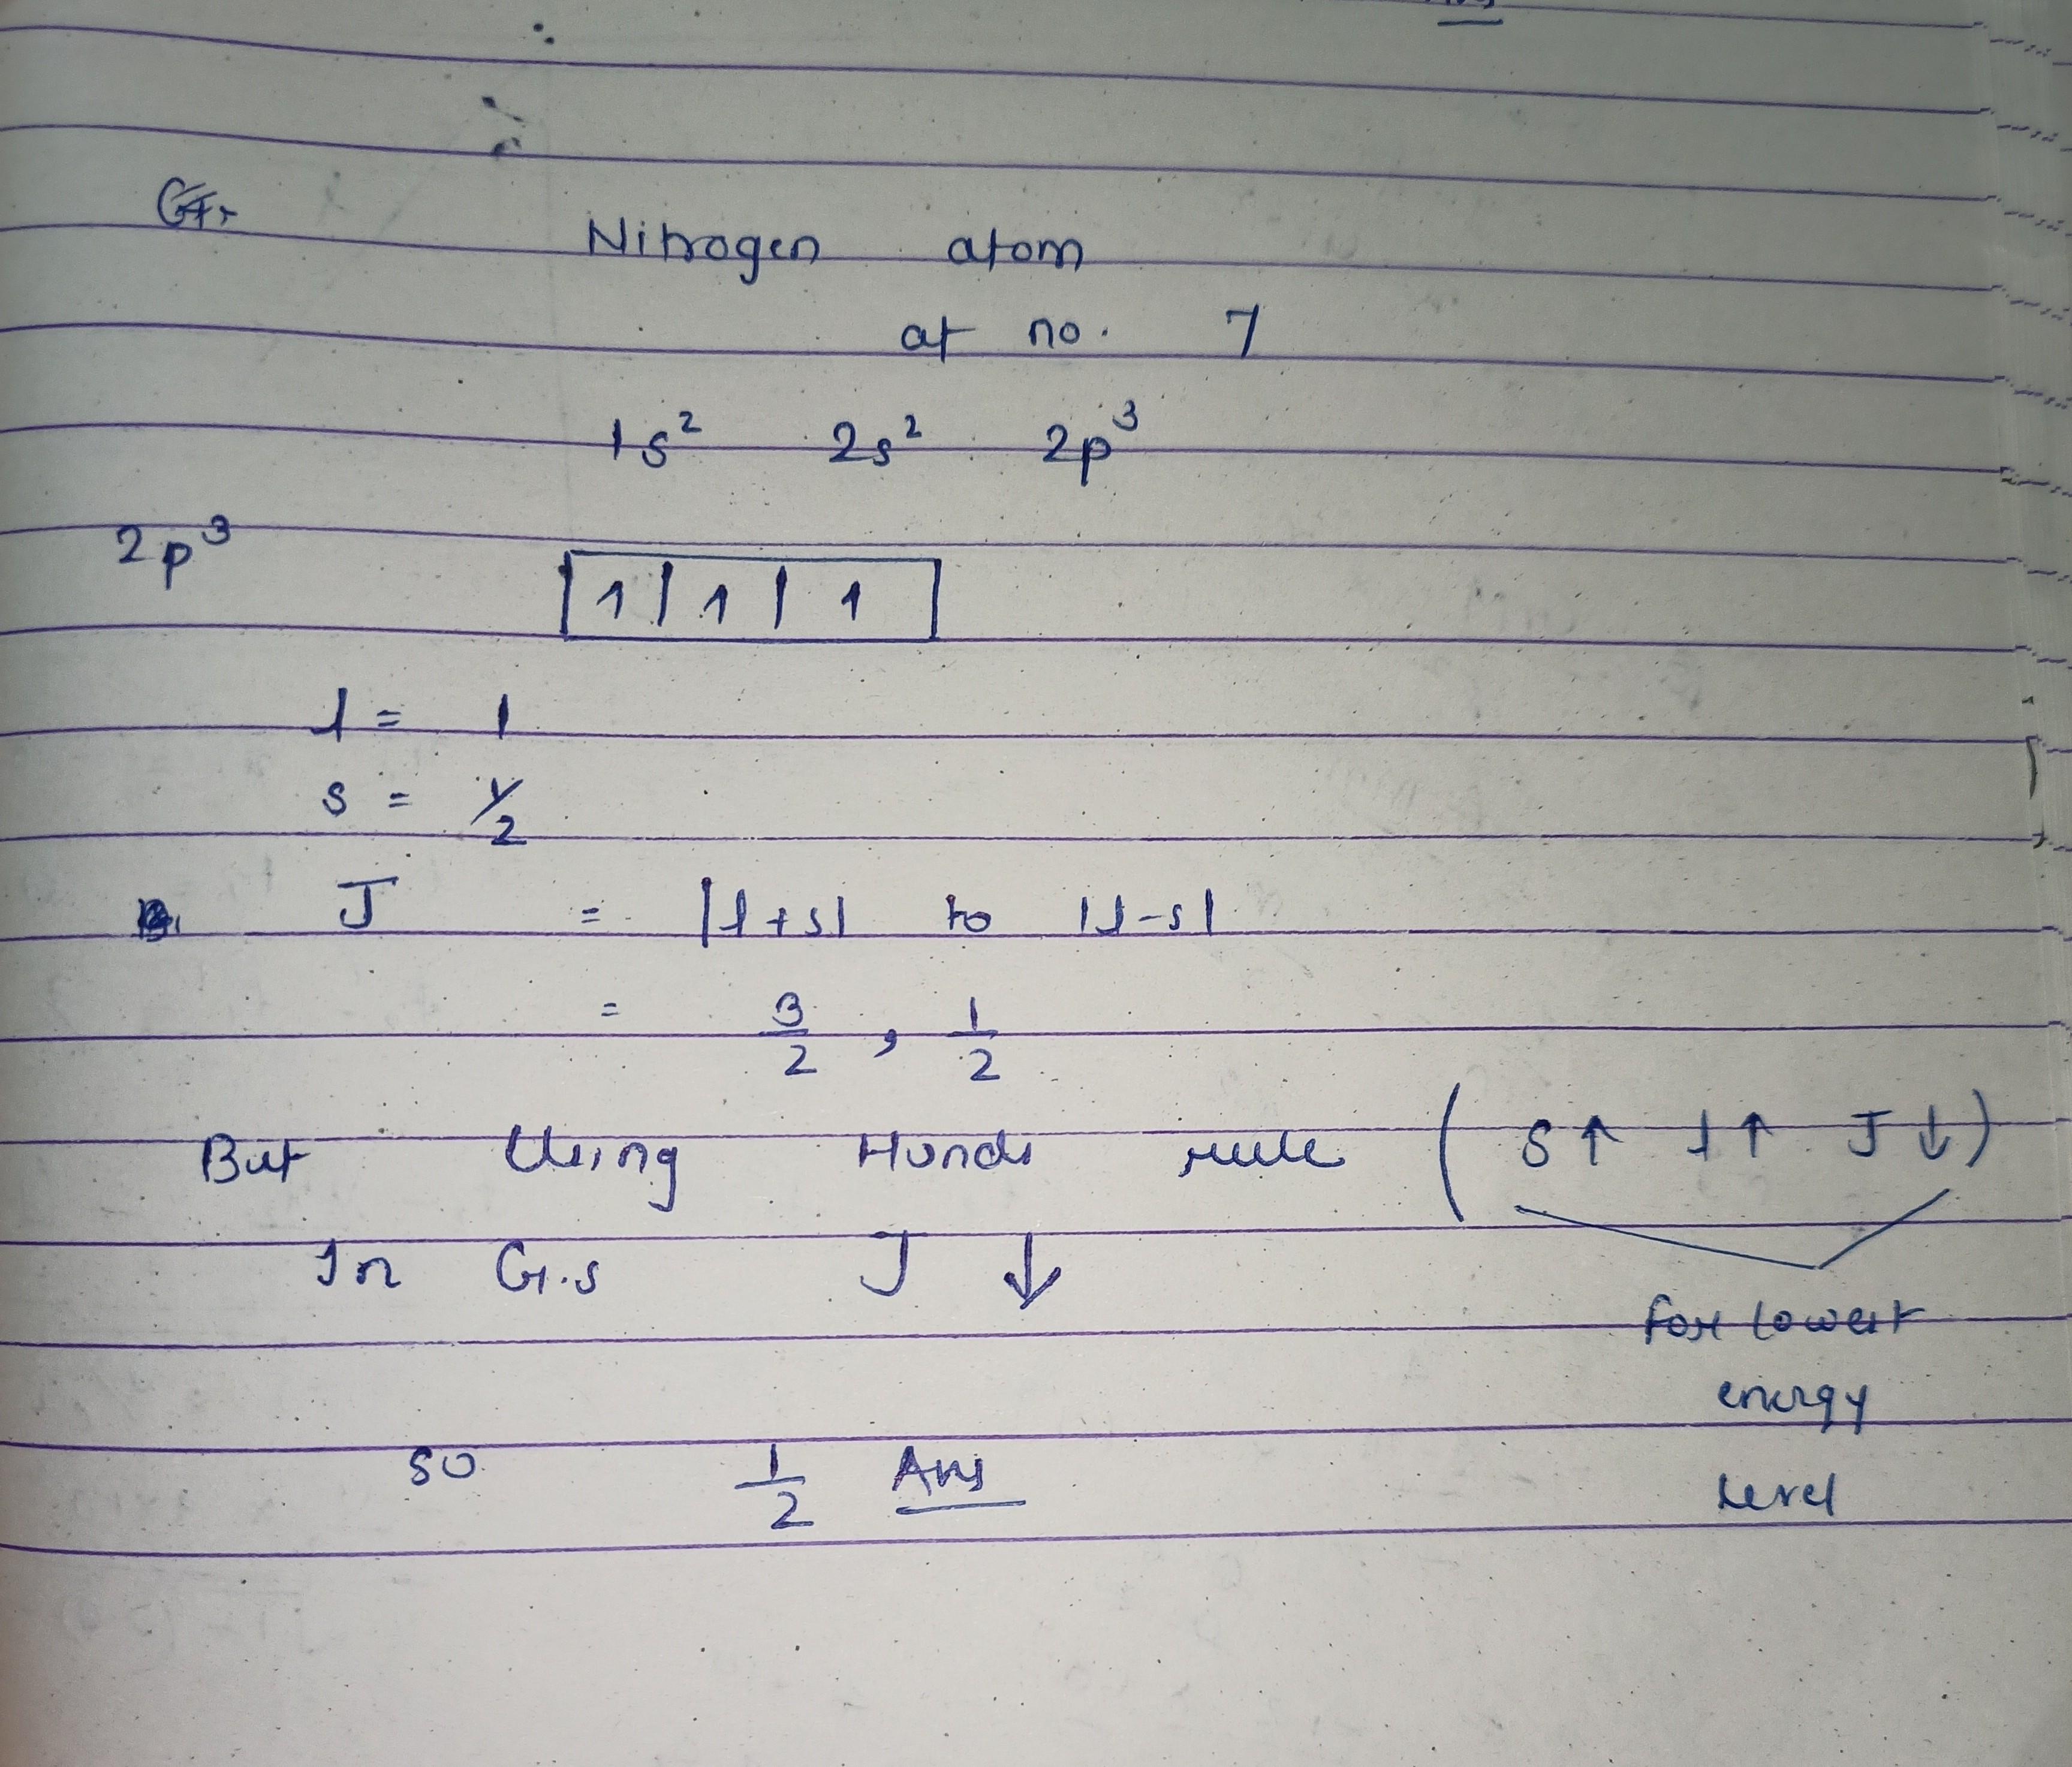 Nitrogen atom
at no. 7
1s² 2s² 2p³
2p³ |1|1|1|
l = 1
s = 1/2
J = |l+s| to |l-s|
= 3/2 , 1/2
But Using Hunds rule ( S↑ l↑ J↓)
In G.s J ↓
for lowest
energy
so 1/2 Ans
level